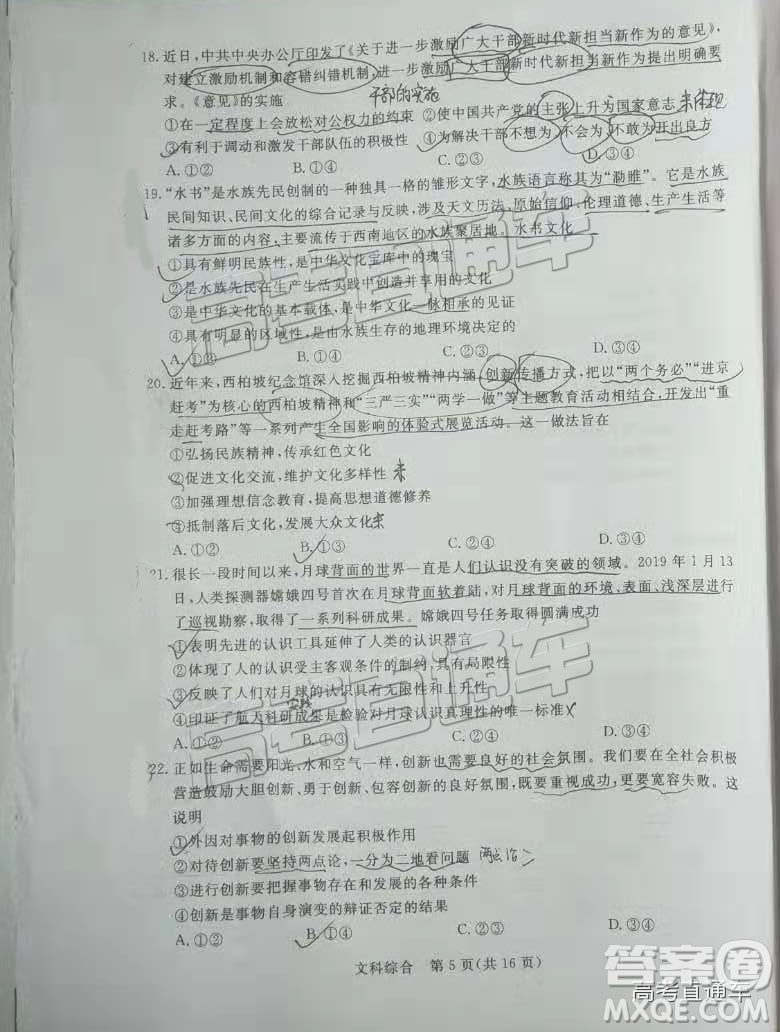 18. 近日,中共中央办公厅印发了《关于进一步激励广大干部新时代新担当新作为的意见》,
对建立激励机制和容错纠错机制,进一步激励广大干部新时代新担当新作为提出明确要
求。《意见》的实施
干部的实施
①在一定程度上会放松对公权力的约束 ②使中国共产党的主张上升为国家意志 未体现
③有利于调动和激发干部队伍的积极性 ④为解决干部不想为、不会为、不敢为开出良方
A. ①② B. ①③ C. ②④ D. ③④
19. “水书”是水族先民创制的一种独具一格的雏形文字,水族语言称其为“泐睢”。它是水族
民间知识、民间文化的综合记录与反映,涉及天文历法、原始信仰、伦理道德、生产生活等
诸多方面的内容,主要流传于西南地区的水族聚居地。水书文化
①具有鲜明民族性,是中华文化宝库中的瑰宝
②是水族先民在生产生活实践中创造并享用的文化
③是中华文化的基本载体,是中华文化一脉相承的见证
④具有明显的区域性,是由水族生存的地理环境决定的
A. ①② B. ①③ C. ②④ D. ③④
20. 近年来,西柏坡纪念馆深入挖掘西柏坡精神内涵,创新传播方式,把以“两个务必”“进京
赶考”为核心的西柏坡精神和“三严三实”“两学一做”等主题教育活动相结合,开发出“重
走赶考路”等一系列产生全国影响的体验式展览活动。这一做法旨在
①弘扬民族精神,传承红色文化
②促进文化交流,维护文化多样性 未
③加强理想信念教育,提高思想道德修养
④抵制落后文化,发展大众文化 未
A. ①② B. ①③ C. ②④ D. ③④
21. 很长一段时间以来,月球背面的世界一直是人们认识没有突破的领域。2019年1月13
日,人类探测器嫦娥四号首次在月球背面软着陆,对月球背面的环境、表面、浅深层进行
了巡视勘察,取得了一系列科研成果。嫦娥四号任务取得圆满成功
①表明先进的认识工具延伸了人类的认识器官
②体现了人的认识受主客观条件的制约,具有局限性
③反映了人们对月球的认识具有无限性和上升性
实践
④印证了航天科研成果是检验对月球认识真理性的唯一标准 ×
A. ①② B. ①③ C. ②④ D. ③④
22. 正如生命需要阳光、水和空气一样,创新也需要良好的社会氛围。我们要在全社会积极
营造鼓励大胆创新、勇于创新、包容创新的良好氛围,既要重视成功,更要宽容失败。这
说明
①外因对事物的创新发展起积极作用
②对待创新要坚持两点论,一分为二地看问题
③进行创新要把握事物存在和发展的各种条件
④创新是事物自身演变的辩证否定的结果
A. ①② B. ①③ C. ②④ D. ③④
文科综合 第5页(共16页)
高考直通车
高考直通车
答案圈
高考直通车
MXQE.COM